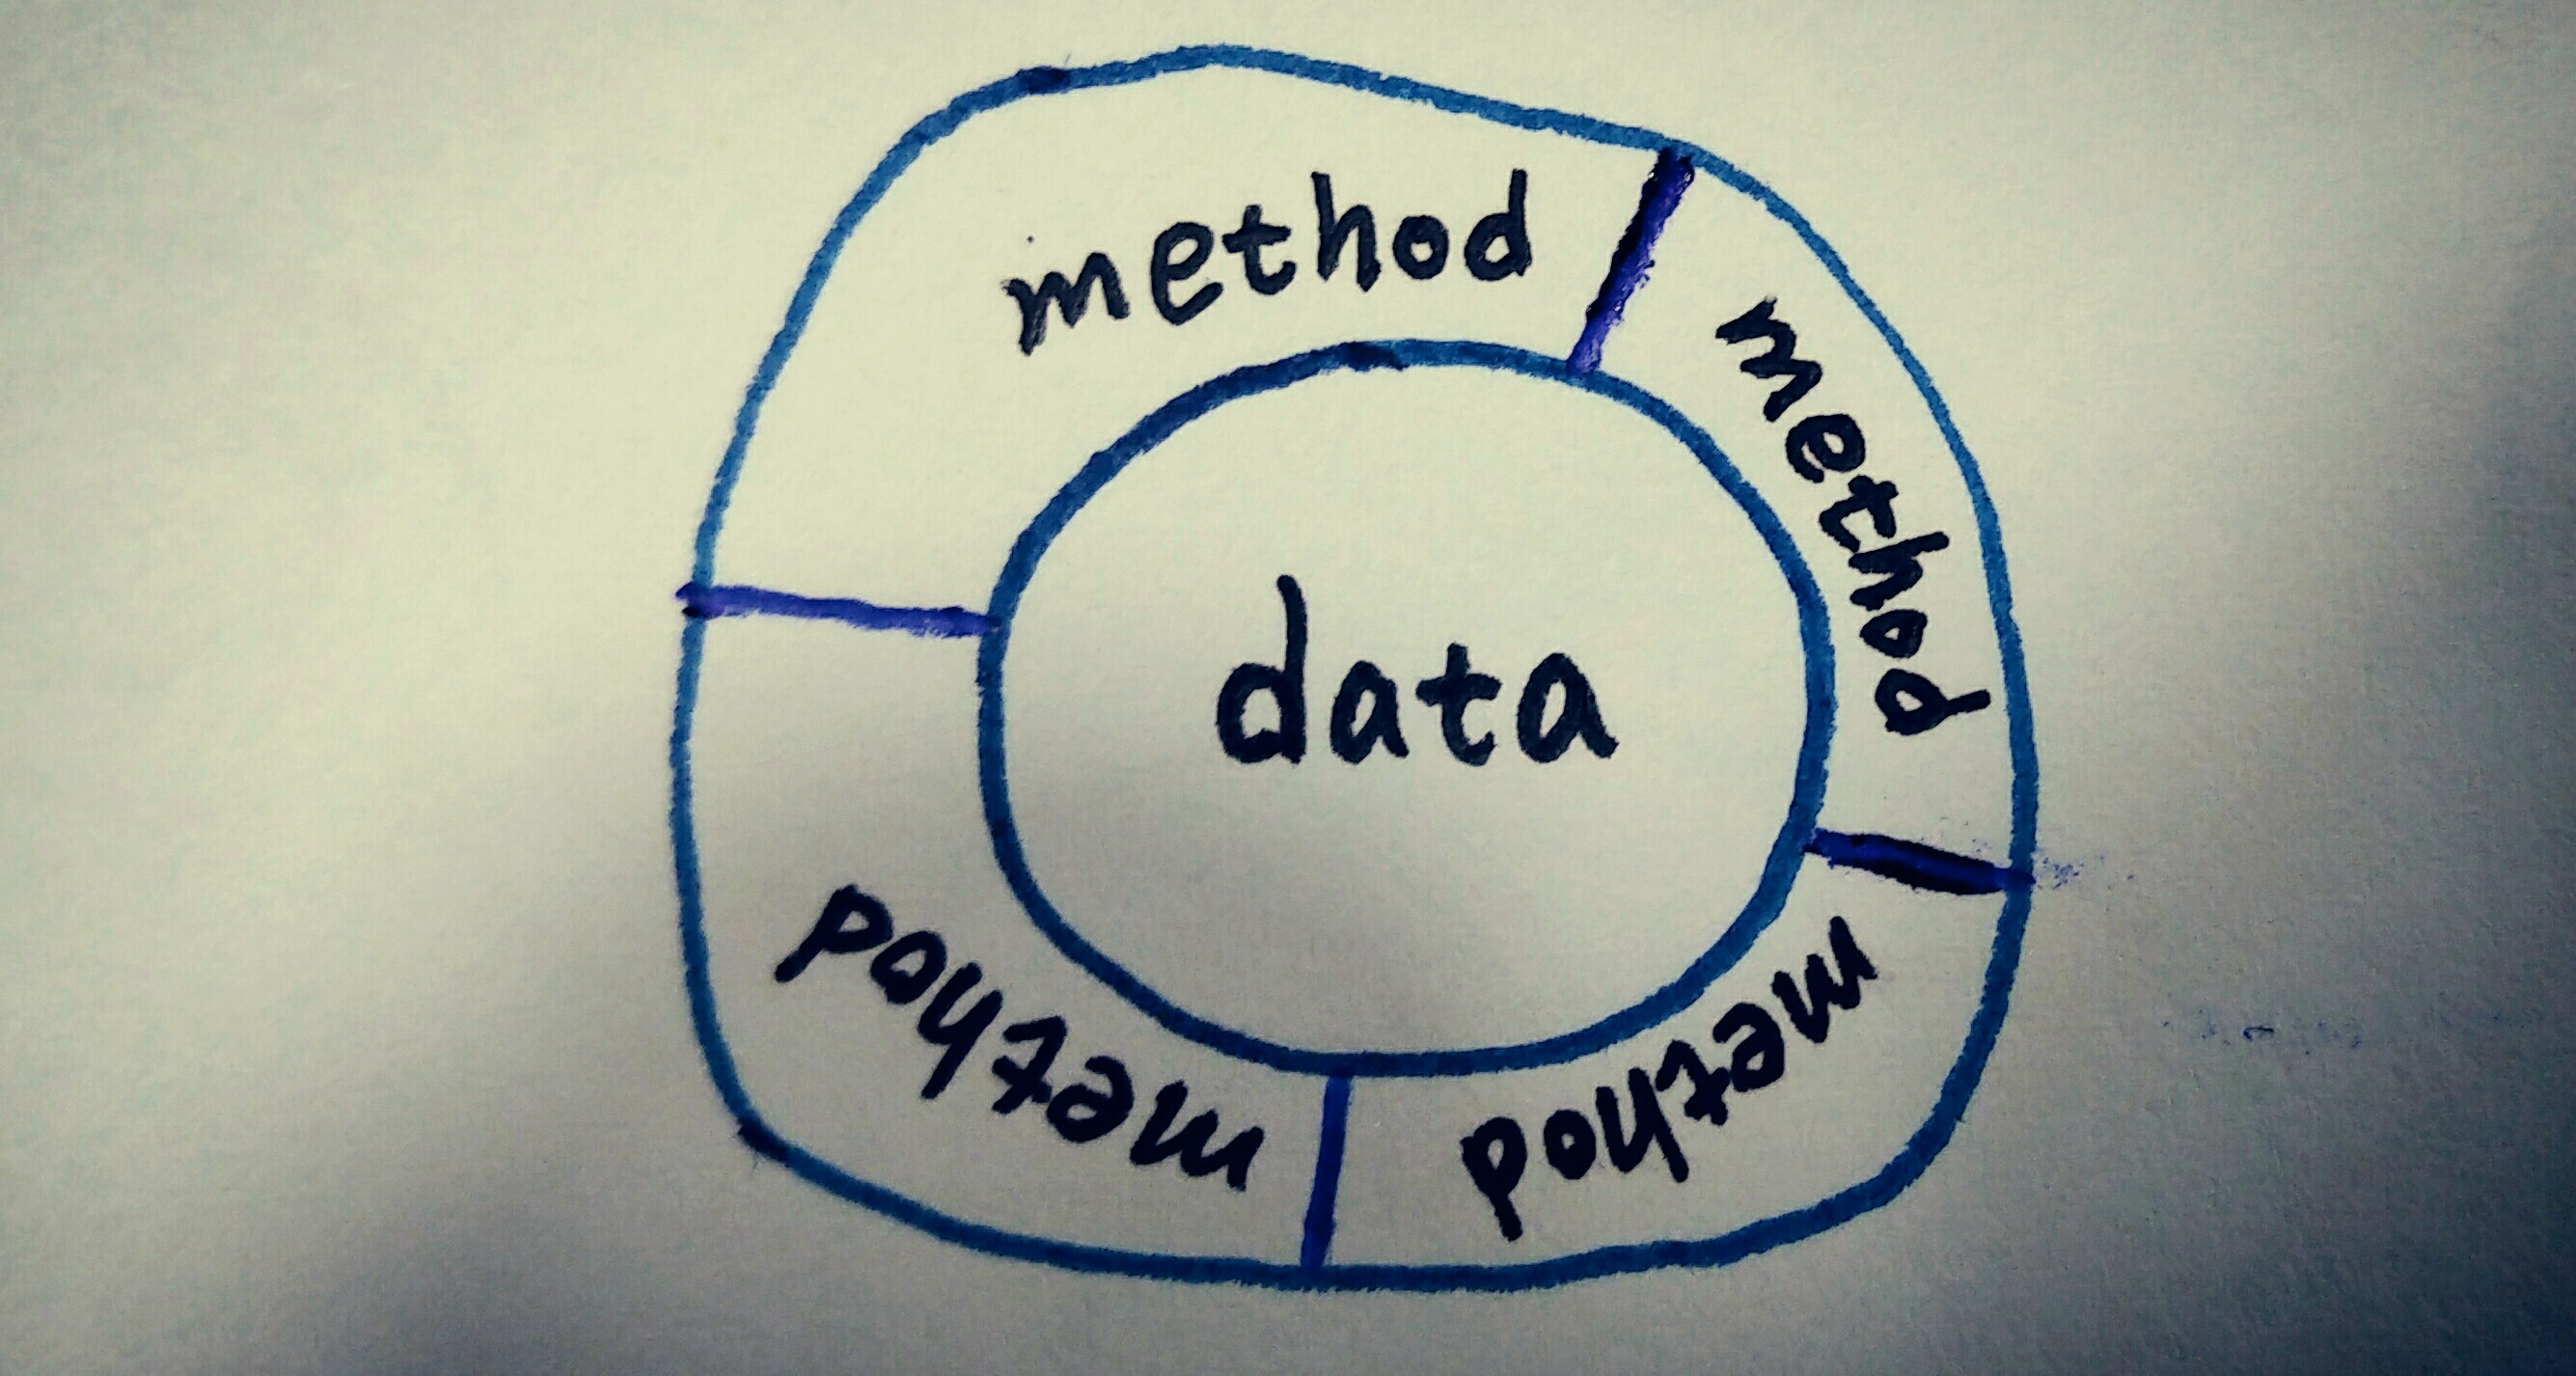 method
method
data
method
method